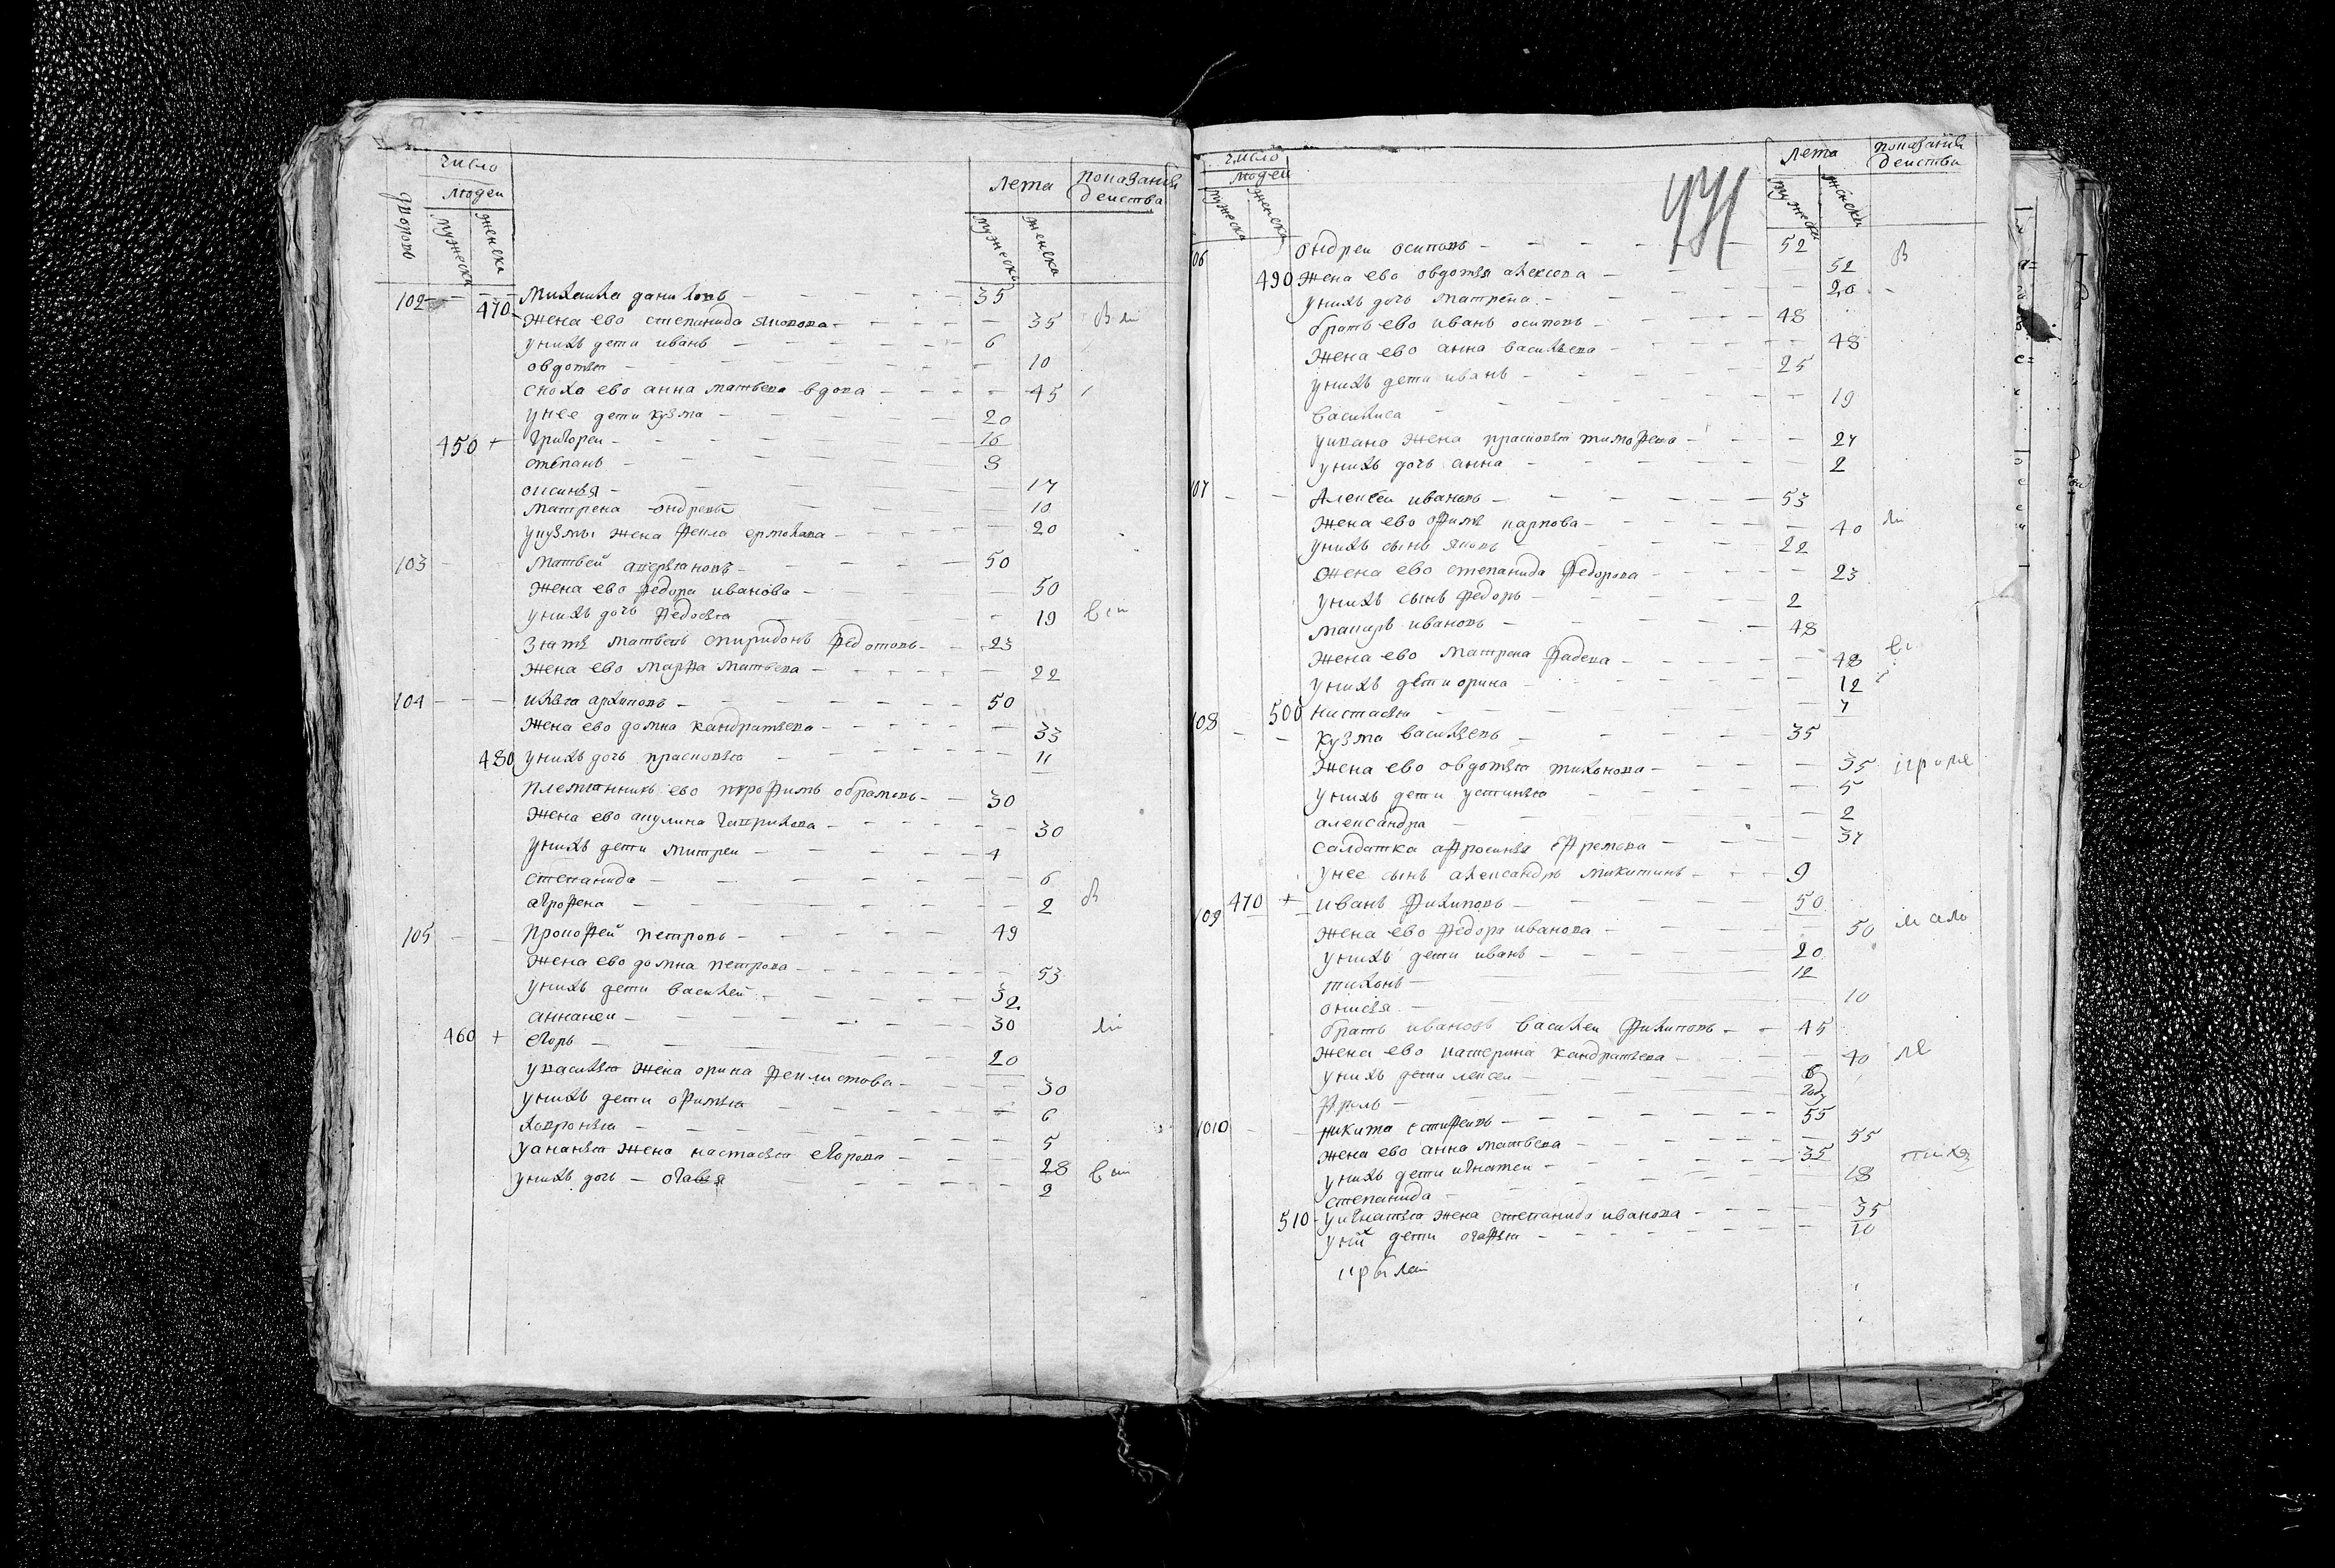 число
людеи
дворовъ
мужеска
женска
лета
мужеска
женска
показание
деиства
102 - - 470 Михаила даниловъ - 35
жена ево степанида яковлва - 35
унихъ дети иванъ - 6
овдотья - 10
сноха ево анна матвева вдова - 45
унее дети кузма - 20
450 + григореи - 16
степанъ - 8
оксинья - 17
матрена ондревы 10
укузмы жена фекла ермолава - 20
103 - матвей аверьяновъ - 50
жена ево федора иванова - 50
унихъ дочь федосья - 19
зять матвевъ спиридонъ федотовъ - 23
жена ево марфа матвева - 22
104 - илья архиповъ - 50
жена ево домна кандратьева - 33
480 унихъ дочь прасковья - 11
племянникъ ево трофимъ обрамовъ - 30
жена ево акулина гаврилова - 30
унихъ дети митреи - 4
степанида - 6
агрофена - 2
105 - прокофей петровъ - 49
жена ево домна петрова - 53
унихъ дети василей - 32
аннанеи - 30
460 + егоръ - 20
увасилья жена орина феклистова - 30
унихъ дети офимья - 6
ховронья - 5
уананья жена настасья егорова - 28
унихъ дочь - огавья 2
число
людеи
мужеска
женска
лета
мужеска
женска
показание
деиства
471
06 ондреи осиповъ - 52
490 жена ево овдотья алексева - 52
унихъ дочь матрена - 20
братъ ево иванъ осиповъ - 48
жена ево анна васильева - 48
унихъ дети иванъ - 25
василиса - 19
уивана жена прасковья тимофева - 24
унихъ дочь анна - 2
107 - Алексеи ивановъ - 53
жена ево офимь карпова - 40
унихъ сынъ яковъ - 22
жена ево степанида федорова - 23
унихъ сынъ федоръ - 2
макаръ ивановъ - 48
жена ево матрена фадева - 48
унихъ дети орина - 12
500 настасья - 7
108 - кузма васильевъ - 35
жена ево овдотья тихонова - 35
унихъ дети устинья - 5
александра - 2
салдатка афросинья ефремова - 37
унее сынъ александръ микитинъ - 9
109 470 + иванъ филиповъ - 50
жена ево федора иванова - 50
унихъ дети иванъ - 20
тихонъ - 12
онисья - 10
братъ ивановъ василеи филиповъ - 45
жена ево катерина кандратьева - 40
унихъ дети лексеи - 6
фролъ - году
1010 - никита естифевъ - 55
жена ево анна матвева - 55
унихъ дети игнатеи - 35
степанида - 18
510 - уигнатья жена степанида иванова - 35
уних дети огафья - 10